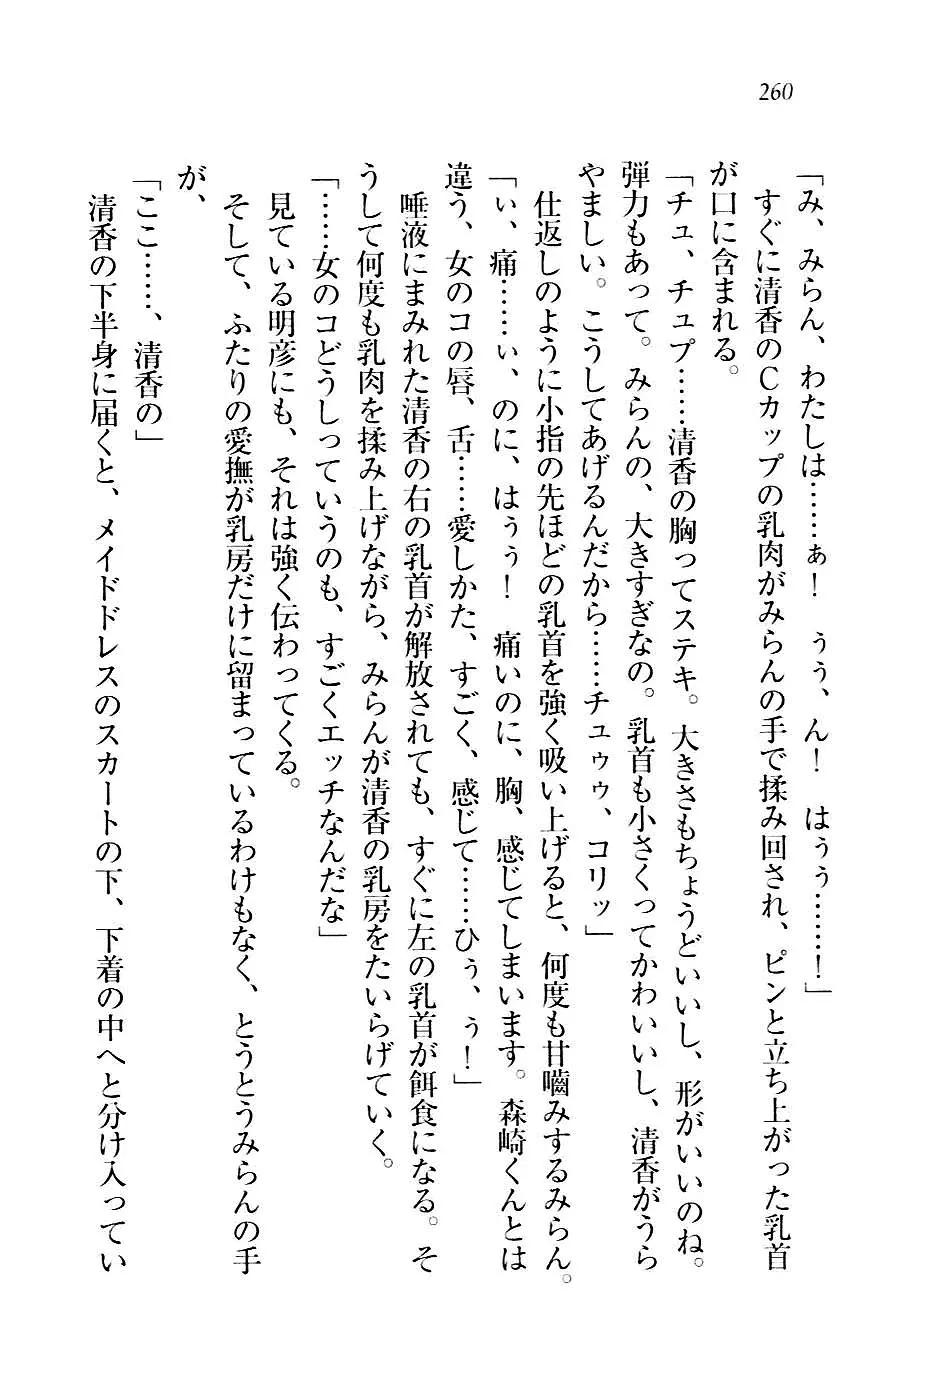 260
「み、みらん、わたしは……ぁ！　ぅぅ、ん！　はぅぅ……！」
すぐに清香のCカップの乳肉がみらんの手で揉み回され、ピンと立ち上がった乳首
が口に含まれる。
「チュ、チュプ……清香の胸ってステキ。大きさもちょうどいいし、形がいいのね。
弾力もあって。みらんの、大きすぎなの。乳首も小さくってかわいいし、清香がうら
やましい。こうしてあげるんだから……チュゥゥ、コリッ」
仕返しのように小指の先ほどの乳首を強く吸い上げると、何度も甘嚙みするみらん。
「ぃ、痛……ぃ、のに、はぅぅ！　痛いのに、胸、感じてしまいます。森崎くんとは
違う、女のコの唇、舌……愛しかた、すごく、感じて……ひぅ、ぅ！」
唾液にまみれた清香の右の乳首が解放されても、すぐに左の乳首が餌食になる。そ
うして何度も乳肉を揉み上げながら、みらんが清香の乳房をたいらげていく。
「……女のコどうしっていうのも、すごくエッチなんだな」
見ている明彦にも、それは強く伝わってくる。
そして、ふたりの愛撫が乳房だけに留まっているわけもなく、とうとうみらんの手
が、
「ここ……、清香の」
清香の下半身に届くと、メイドドレスのスカートの下、下着の中へと分け入ってい